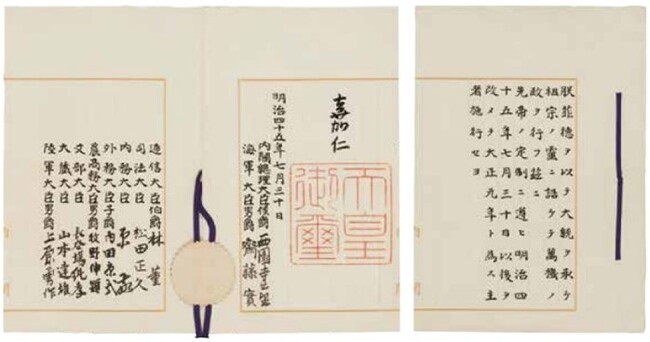 朕菲德ヲ以テ大統ヲ承ケ
祖宗ノ靈ニ誥ケテ萬機ノ
政ヲ行フ茲ニ
先帝ノ定制ニ遵ヒ明治四
十五年七月三十日以後ヲ
改メテ大正元年ト爲ス主
者施行セヨ
嘉仁
天皇
御璽
明治四十五年七月三十日
內閣總理大臣侯爵 西園寺公望
海軍大臣男爵 齋藤實
遞信大臣伯爵 林董
司法大臣 松田正久
內務大臣 原敬
外務大臣子爵 內田康哉
農商務大臣男爵 牧野伸顯
文部大臣 長谷場純孝
大藏大臣 山本達雄
陸軍大臣男爵 上原勇作